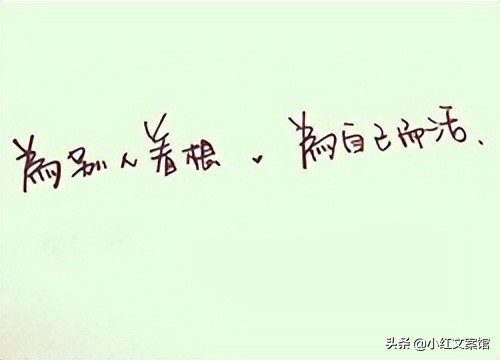 為别人着想，為自己而活、
头条 @小红文案馆